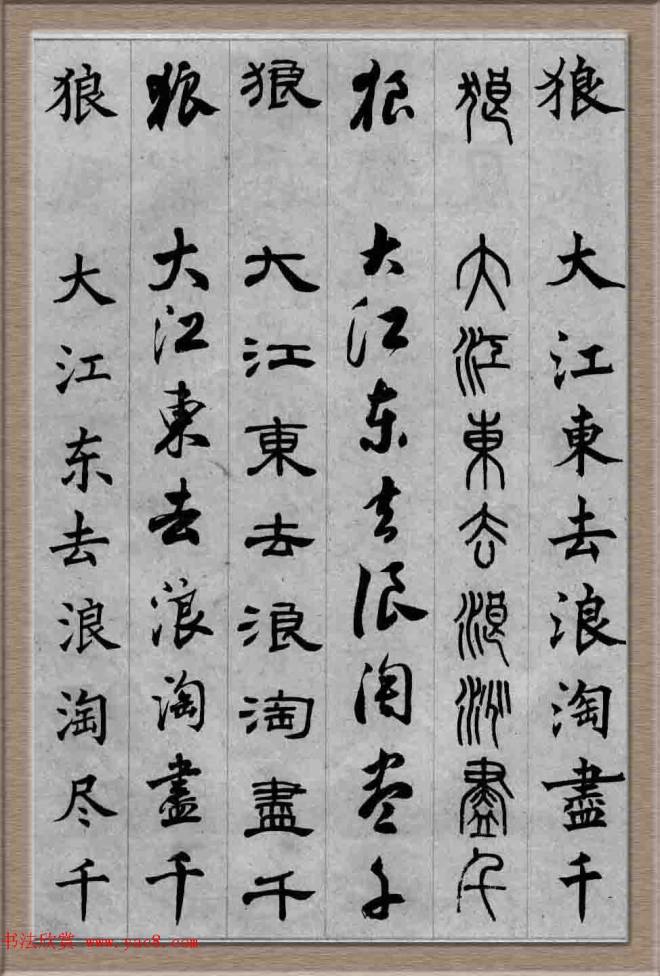 狼 大江東去浪淘盡千
狼 大江東去浪淘盡千
狼 大江东去浪淘尽千
狼 大江東去浪淘盡千
狼 大江東去浪淘盡千
狼 大江东去浪淘尽千
书法欣赏 www.yac8.com